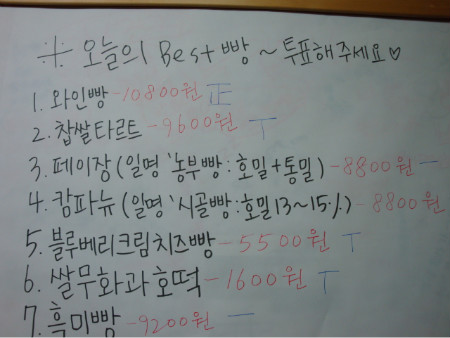 ※ 오늘의 Best 빵 ~ 투표해주세요♡
1. 와인빵 -10800원 正
2. 찹쌀타르트 -9600원 丅
3. 페이장 (일명 '농부빵 : 호밀+통밀) -8800원 一
4. 캄파뉴 (일명 '시골빵 : 호밀13~15%) -8800원
5. 블루베리크림치즈빵 -5500원 丅
6. 쌀무화과호떡 -1600원 丅
7. 흑미빵 -9200원 一